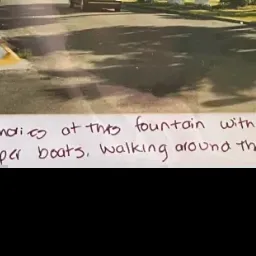 at this fountain with
per boats. Walking around th